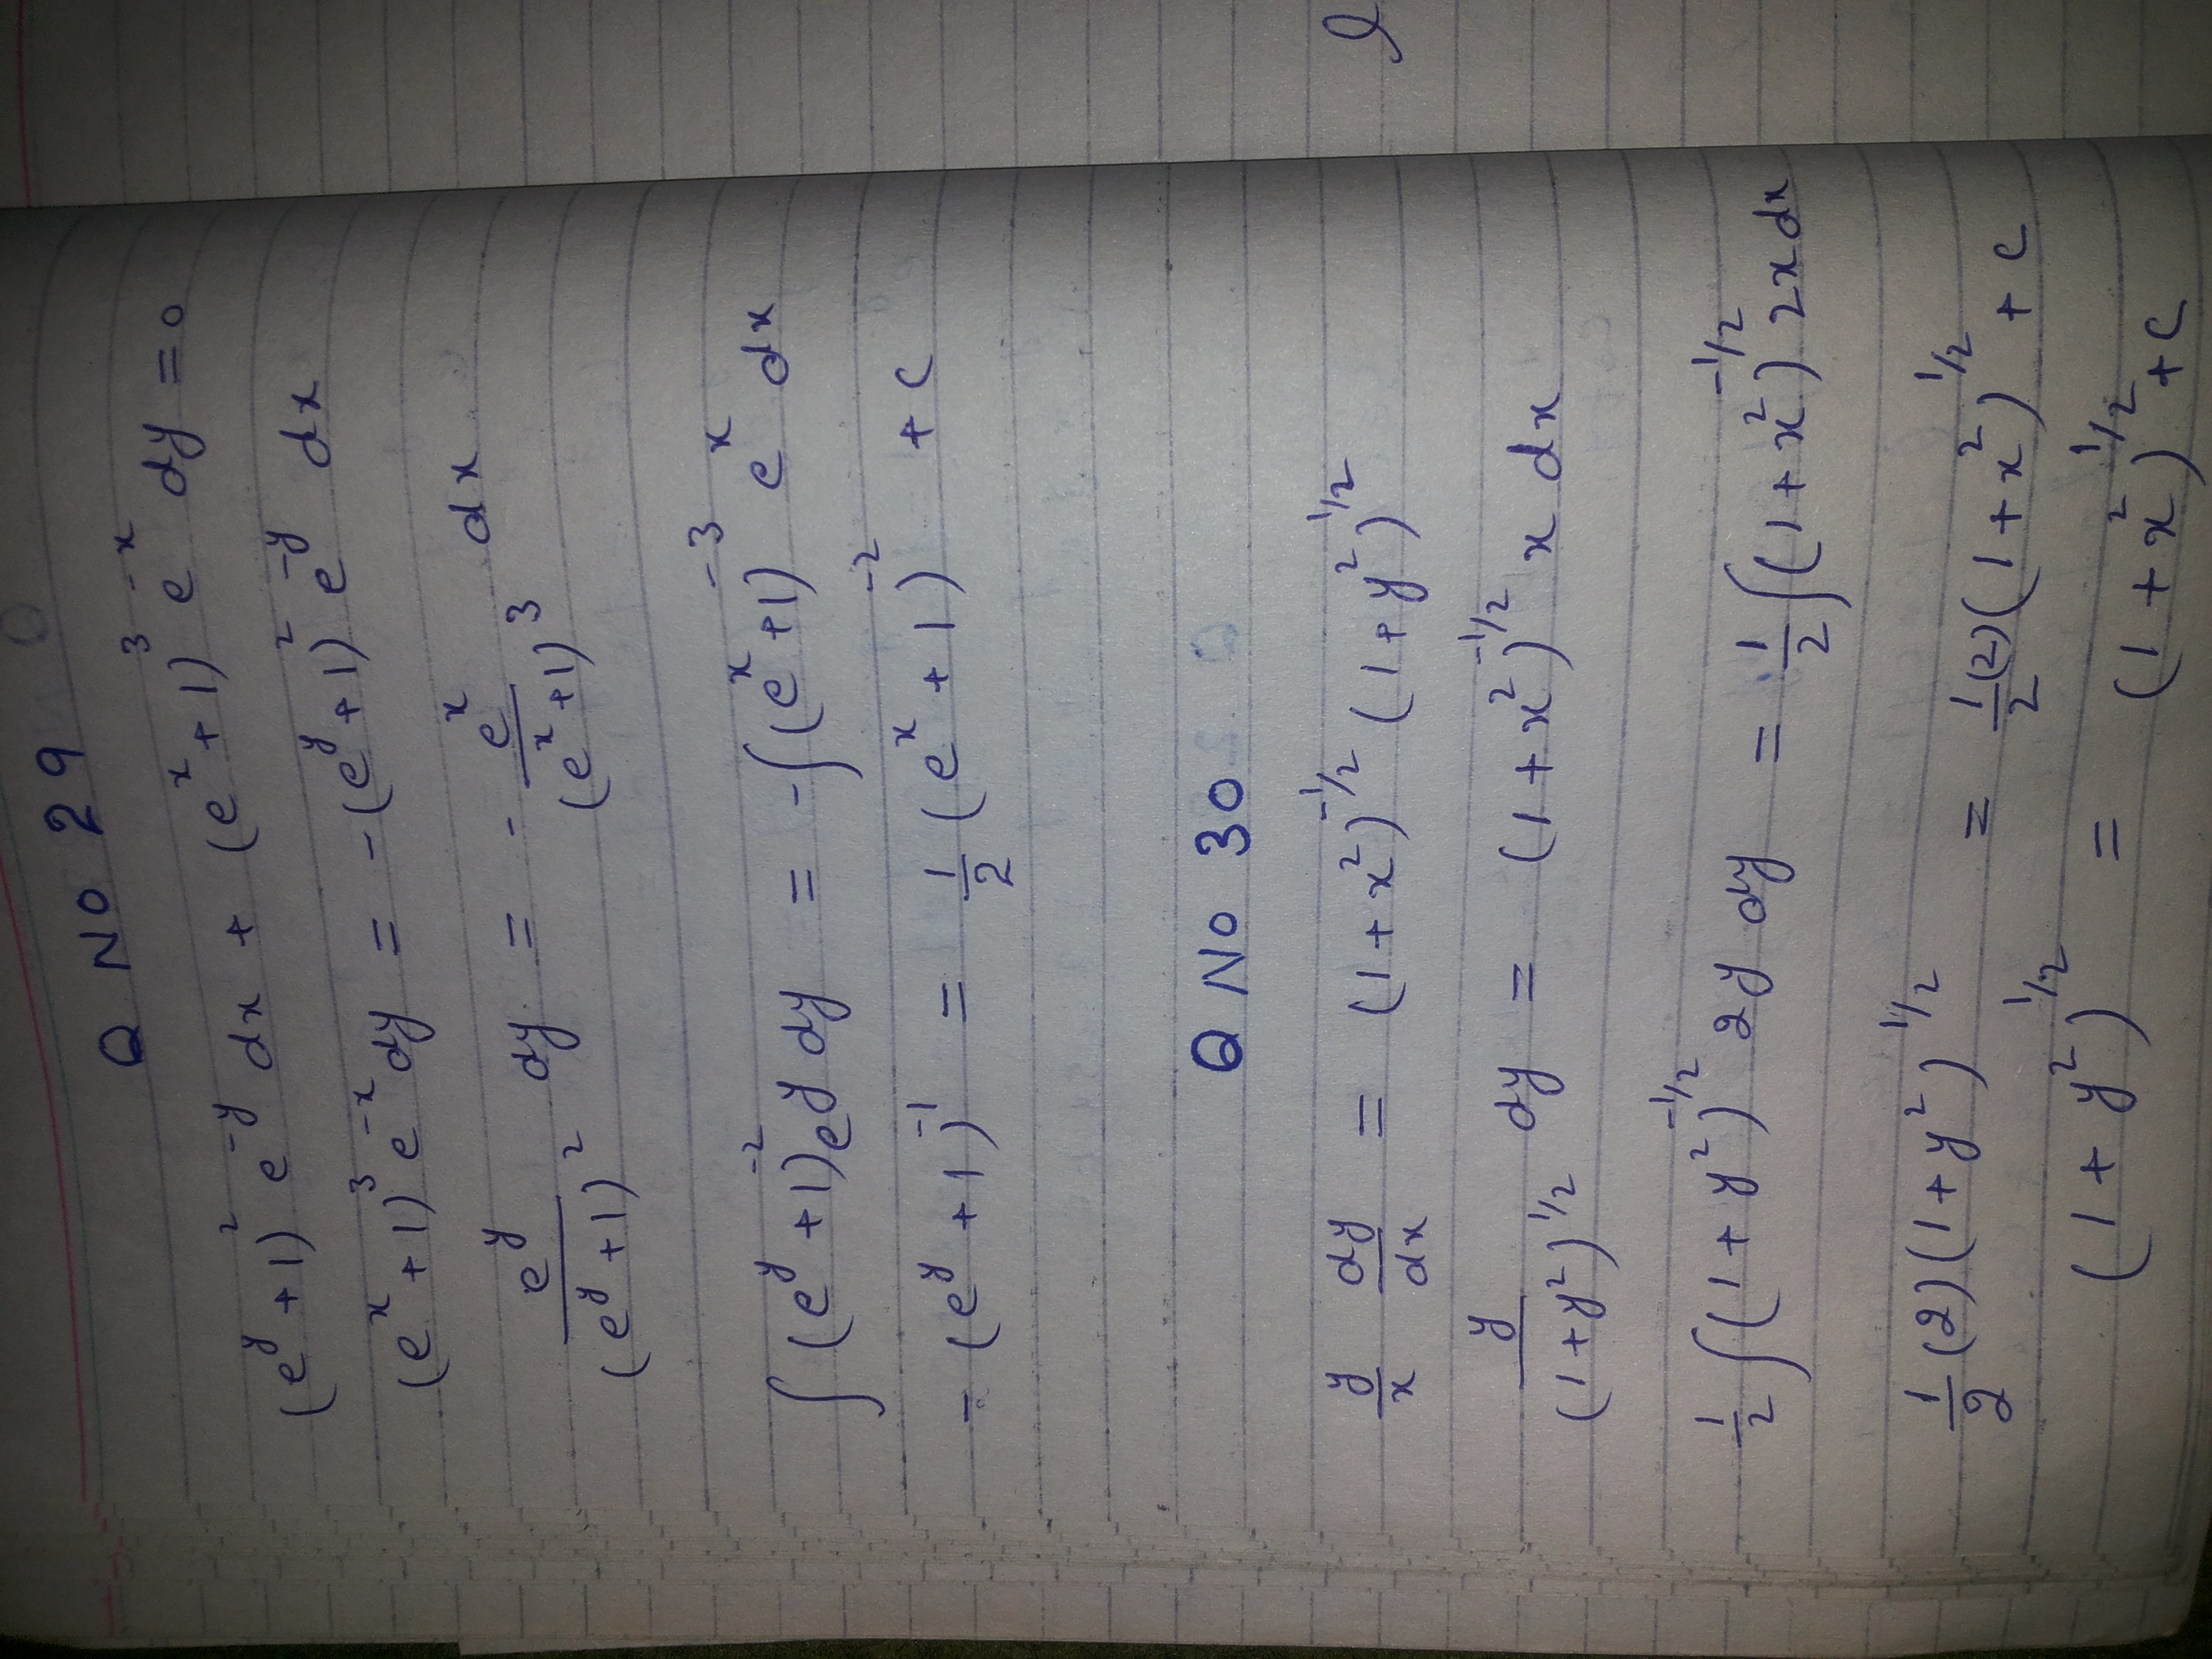 Q No 29
(e^y + 1)^2 e^-y dx + (e^x + 1)^3 e^-x dy = 0
(e^x + 1)^3 e^-x dy = -(e^y + 1)^2 e^-y dx
e^y / (e^y + 1)^2 dy = - e^x / (e^x + 1)^3 dx
∫ (e^y + 1)^-2 e^y dy = -∫ (e^x + 1)^-3 e^x dx
- (e^y + 1)^-1 = 1/2 (e^x + 1)^-2 + c
Q No 30
y/x dy/dx = (1 + x^2)^-1/2 (1 + y^2)^1/2
y / (1 + y^2)^1/2 dy = (1 + x^2)^-1/2 x dx
1/2 ∫ (1 + y^2)^-1/2 2y dy = 1/2 ∫ (1 + x^2)^-1/2 2x dx
1/2 (2) (1 + y^2)^1/2 = 1/2 (2) (1 + x^2)^1/2 + c
(1 + y^2)^1/2 = (1 + x^2)^1/2 + c